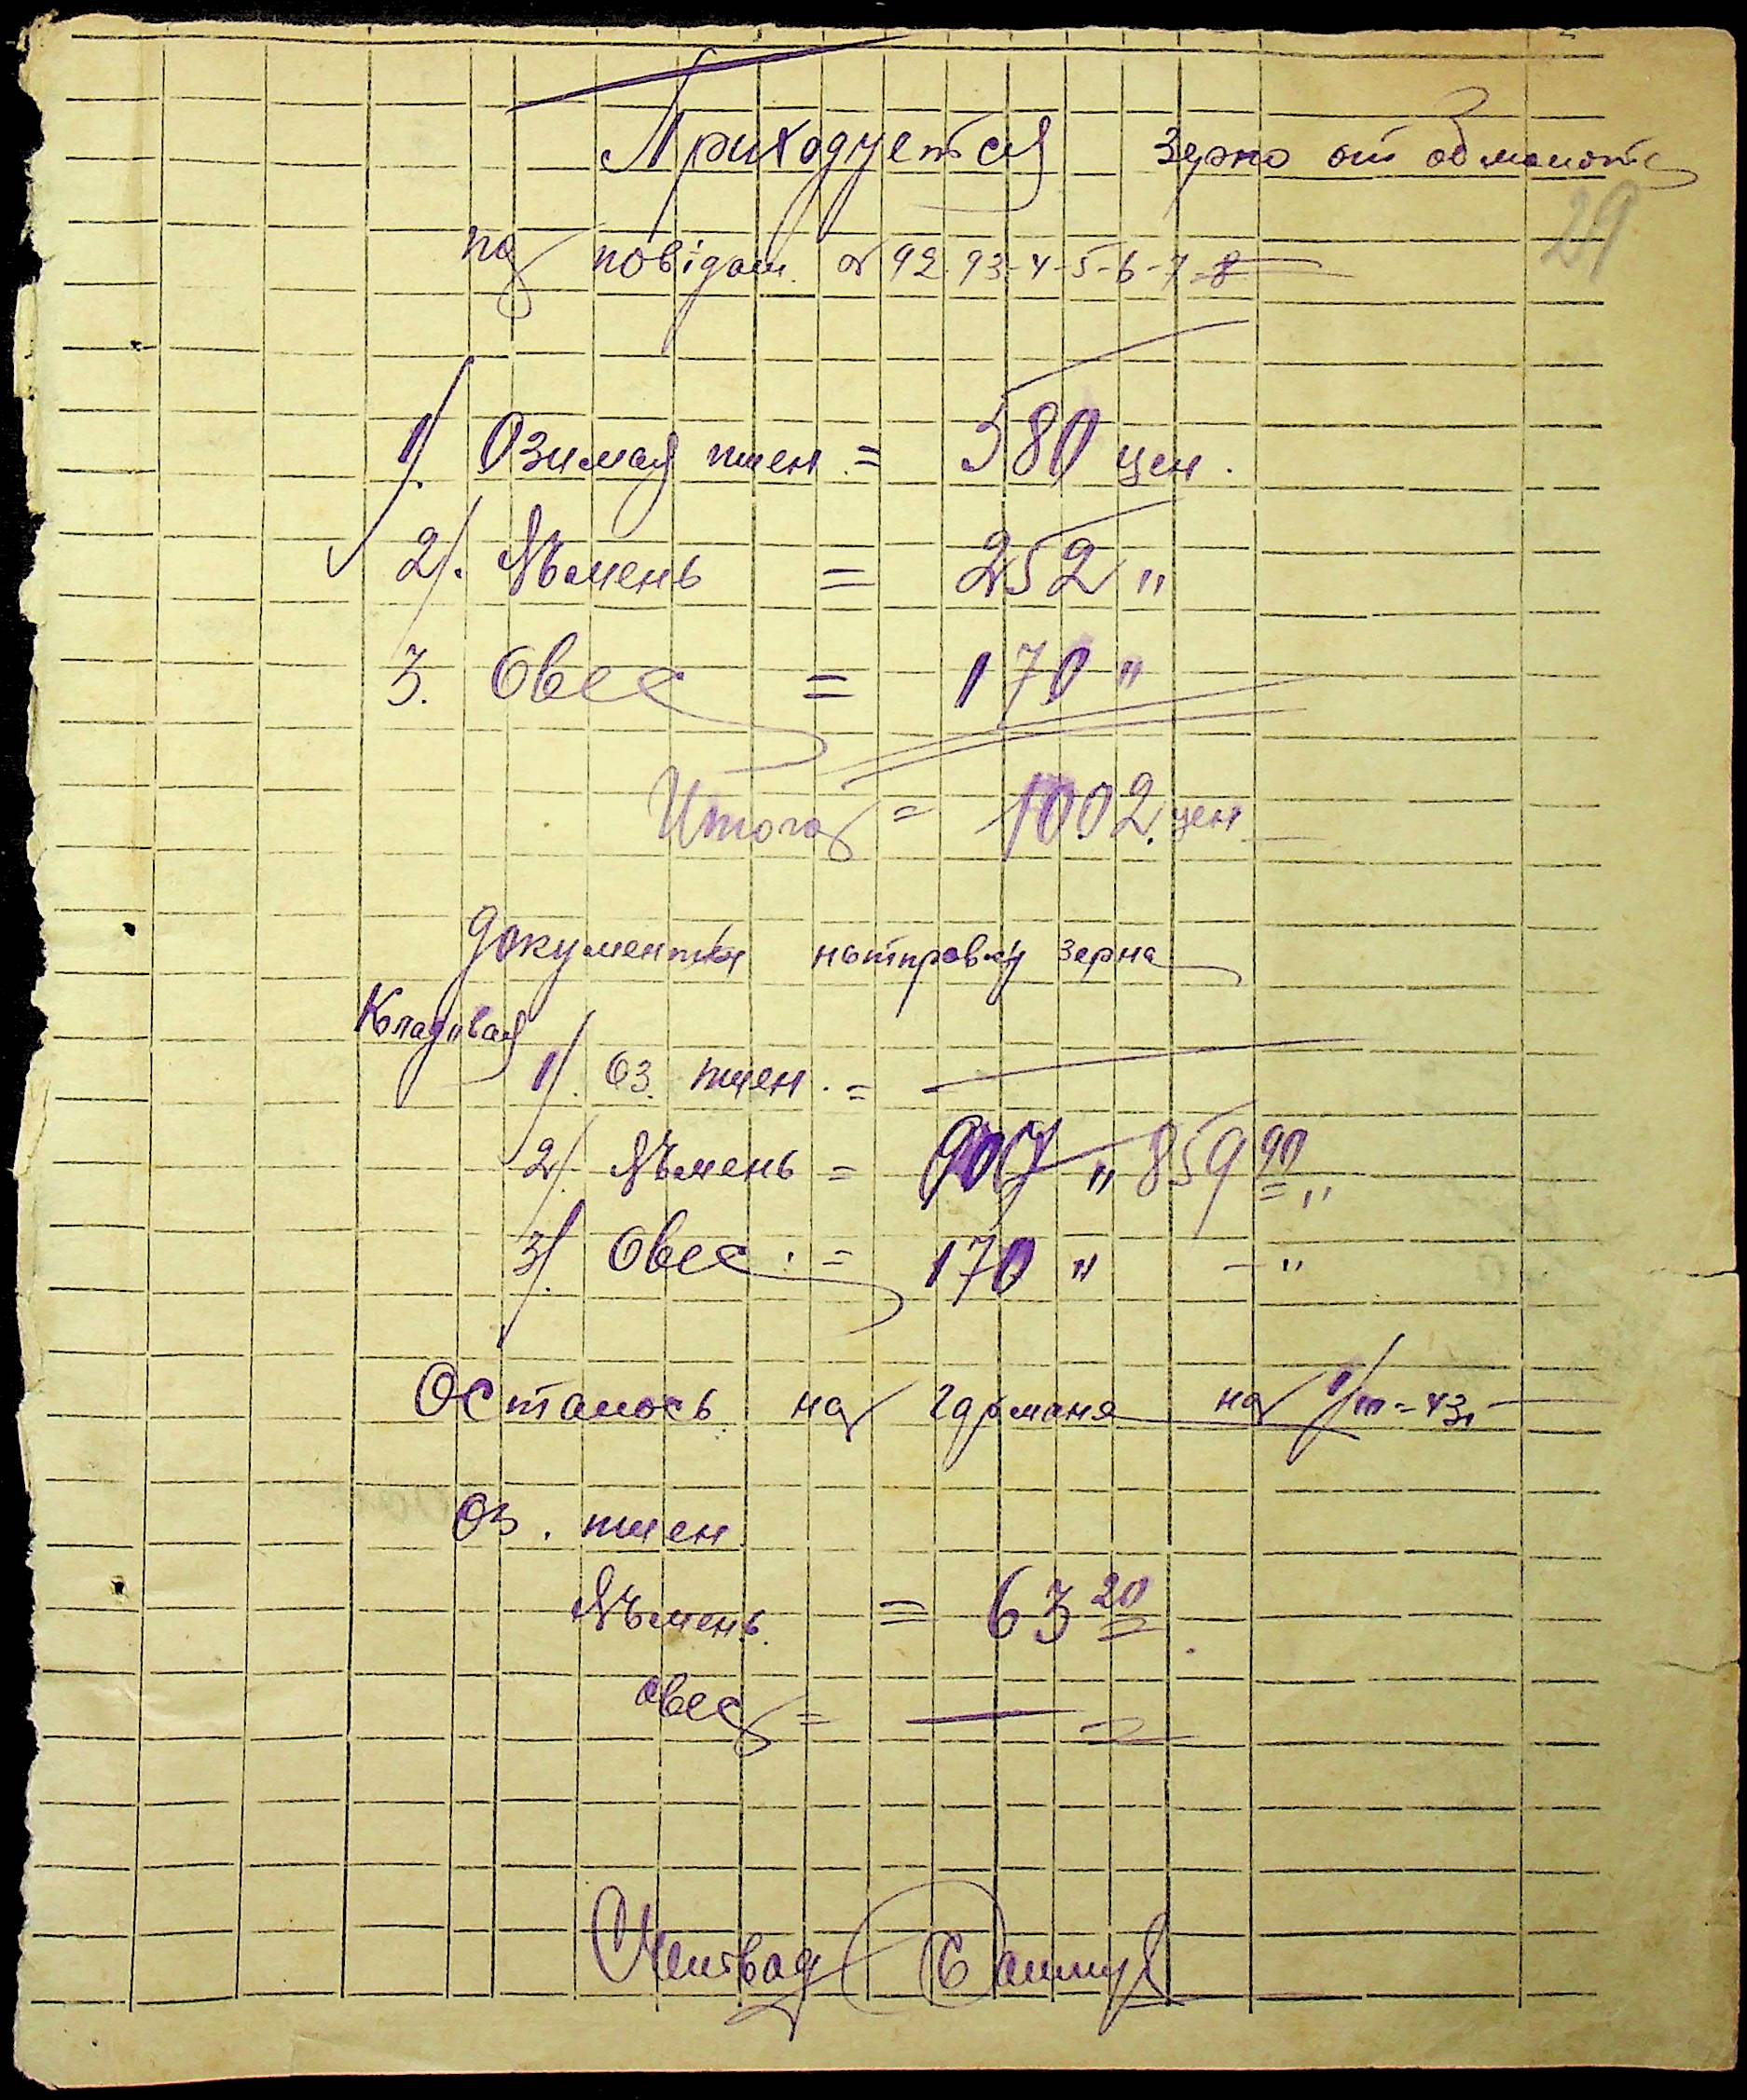 Приходуется зерно от обмолота
29
на повідам. № 92-93-4-5-6-7-8
1/. Озимая пшен. = 580 цен.
2/. Ячмень = 252 "
3. Овес = 170 "
Итого = 1002 цен
Документы зерна
Кладовая
1/. Оз. пшен. = —
2/. Ячмень = 907 " 859 90 "
3/. Овес. = 170 " - "
Осталось на гармане на 1/ - 43
Оз. пшен
Ячмень. = 63 20
овес = —
Счетвод